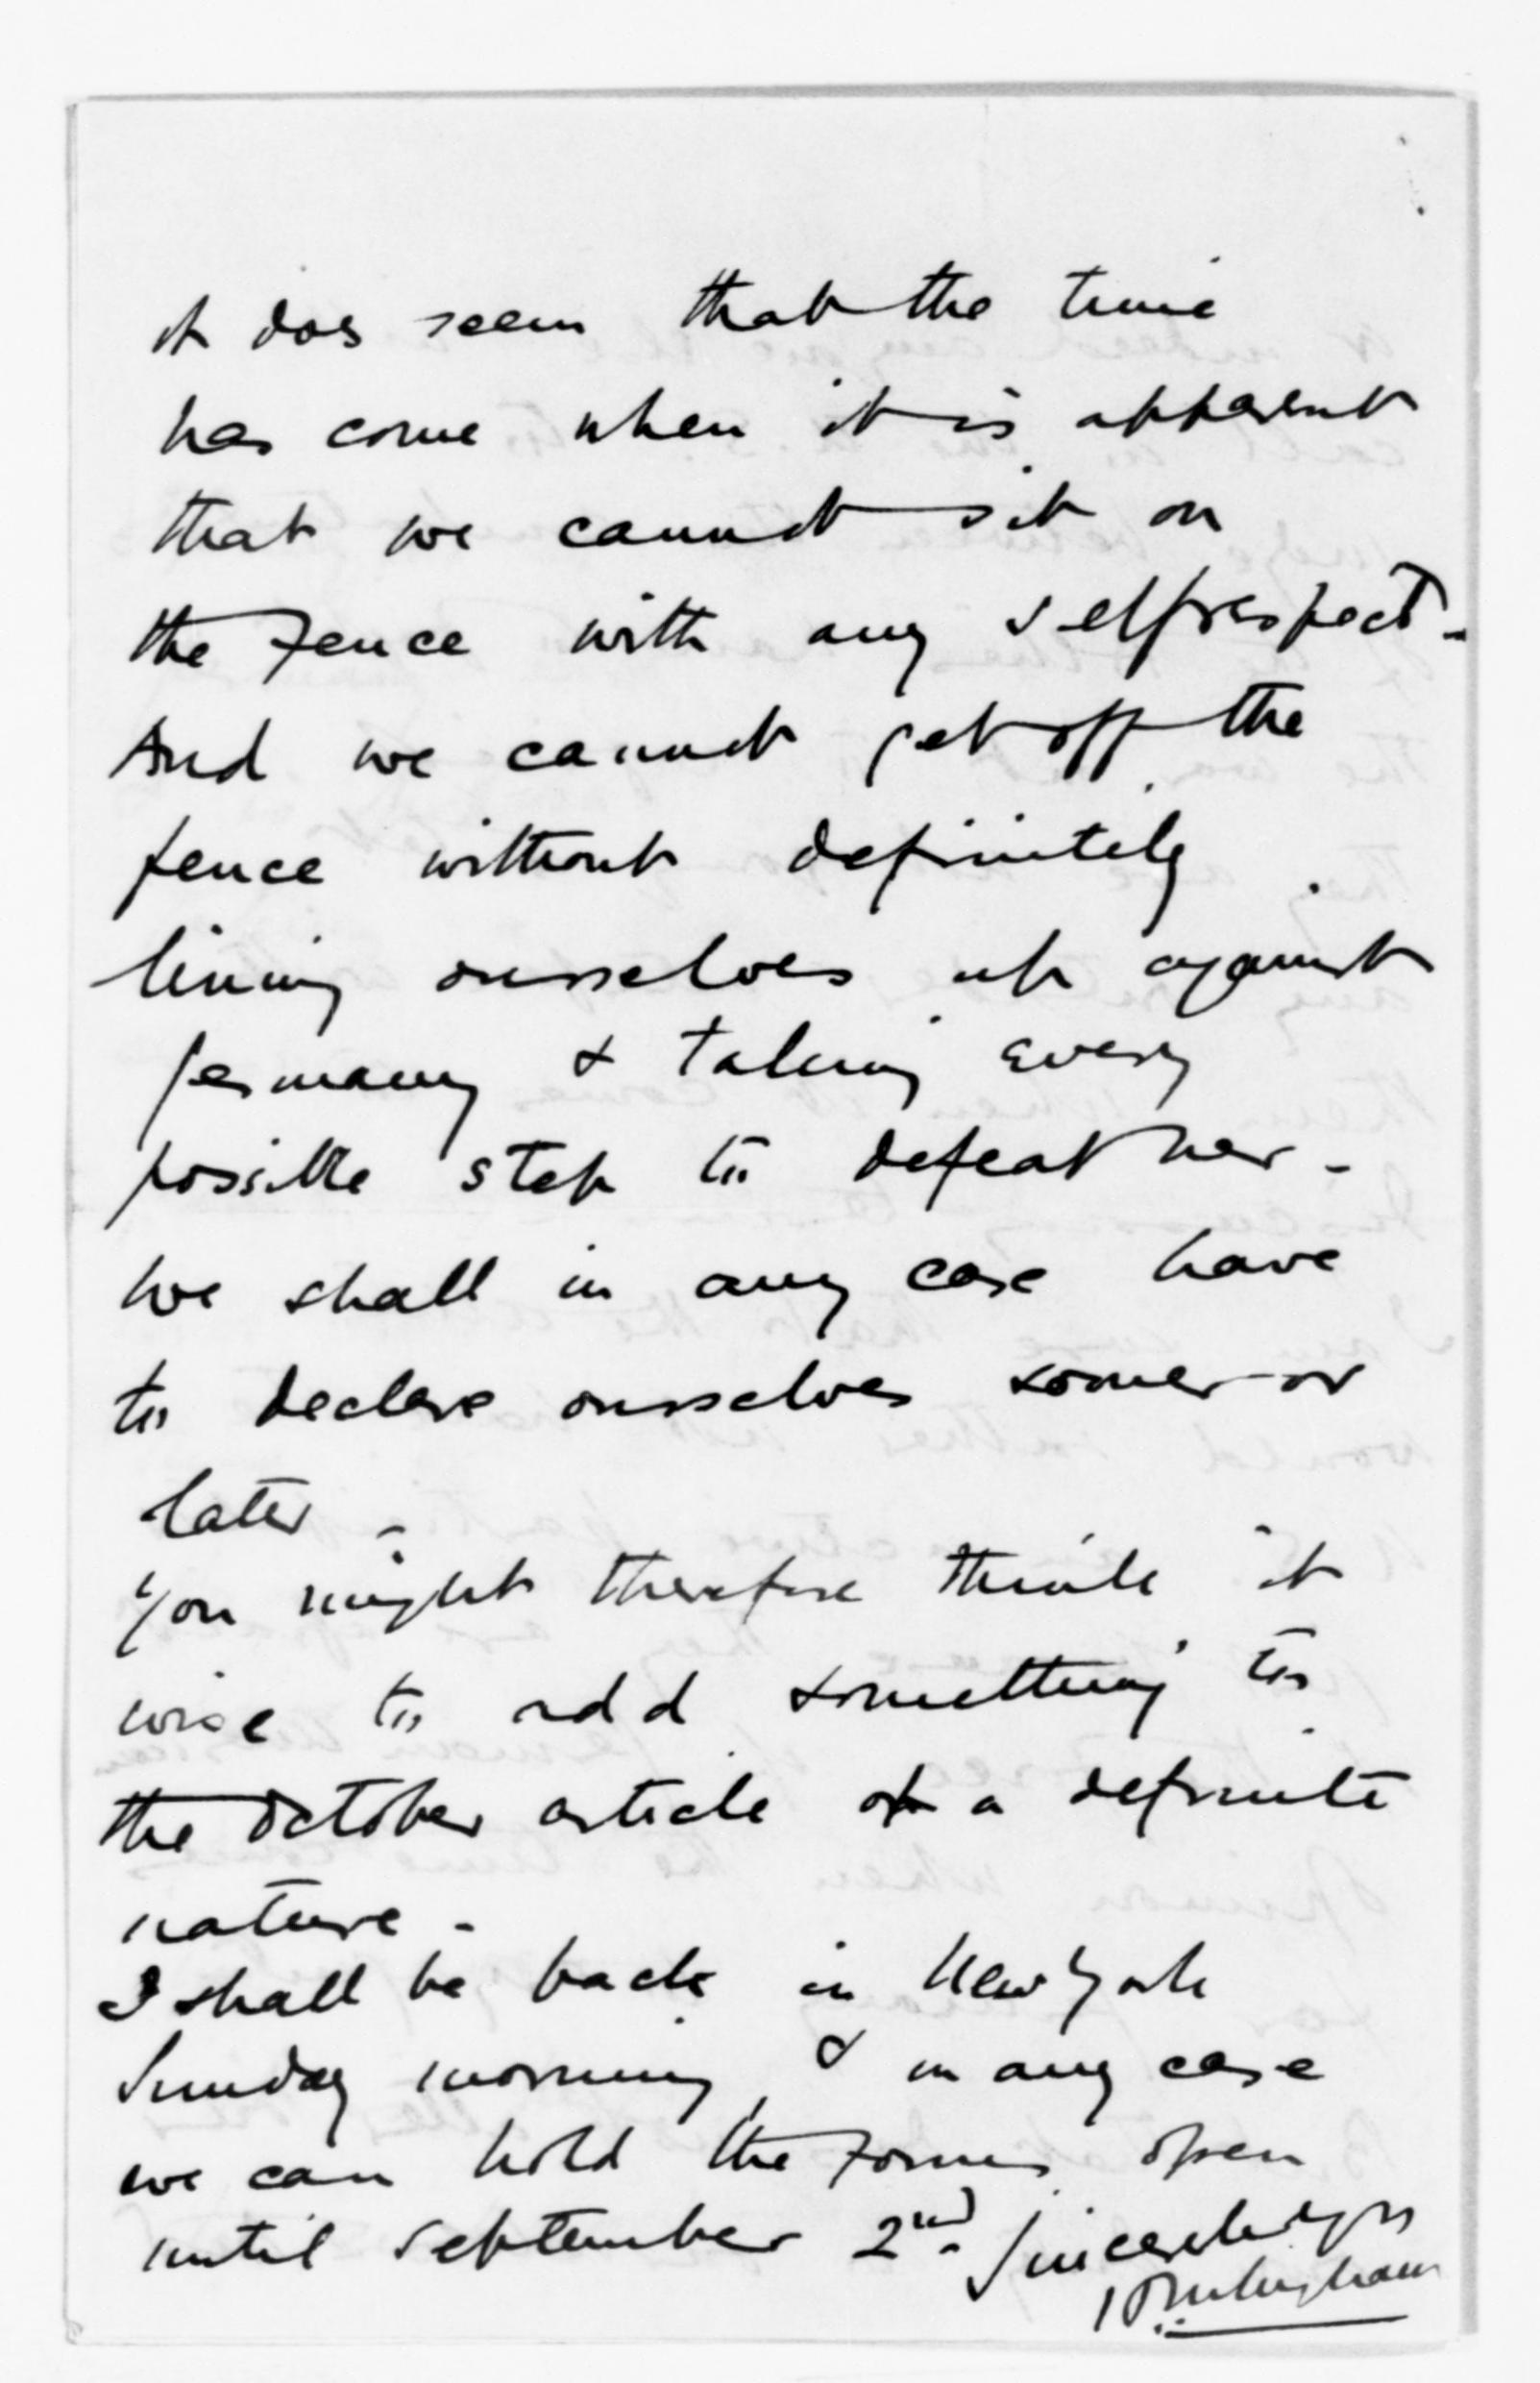 it does seem that the time
has come when it is apparent
that we cannot sit on
the fence with any selfrespect -
And we cannot get off the
fence without definitely
lining ourselves up against
Germany & taking every
possible step to defeat her -
We shall in any case have
to declare ourselves sooner or
later -
You might therefore think it
wise to add something to
the October article of a definite
nature -
I shall be back in New York
Sunday morning, & in any case
we can hold the forms open
until September 2nd. Sincerely yrs